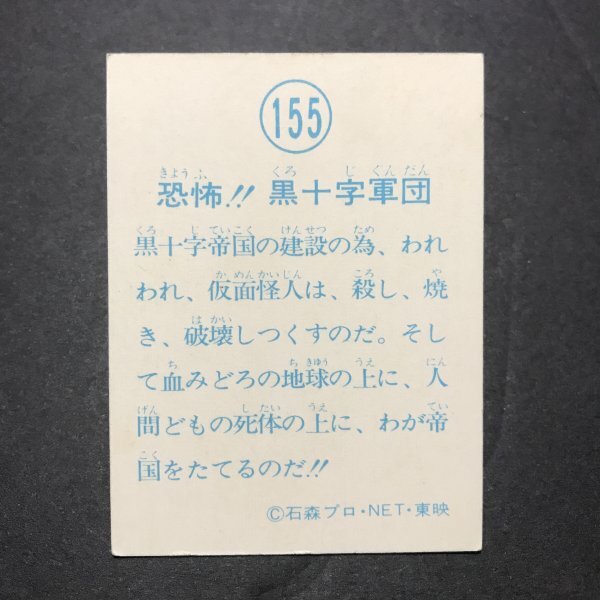 155
恐怖!! 黒十字軍団
黒十字帝国の建設の為、われ
われ、仮面怪人は、殺し、焼
き、破壊しつくすのだ。そし
て血みどろの地球の上に、人
間どもの死体の上に、わが帝
国をたてるのだ!!
©石森プロ・NET・東映